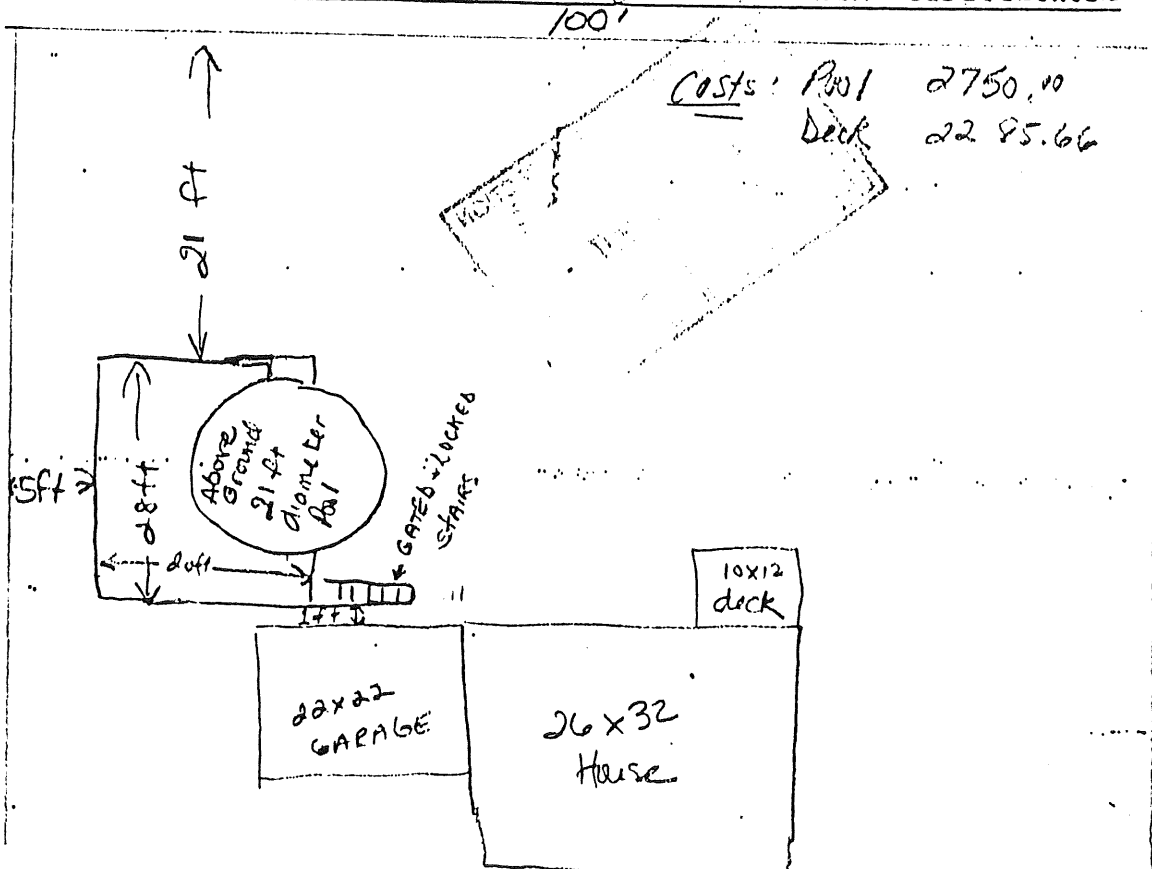 100'
Costs: Pool 2750.00
Deck 2285.66
21 ft
Above
Ground
21 ft
diameter
Pool
GATED + LOCKED
STAIRS
5ft
28ft
20ft
1ft
10x12
deck
22x22
GARAGE
26x32
House